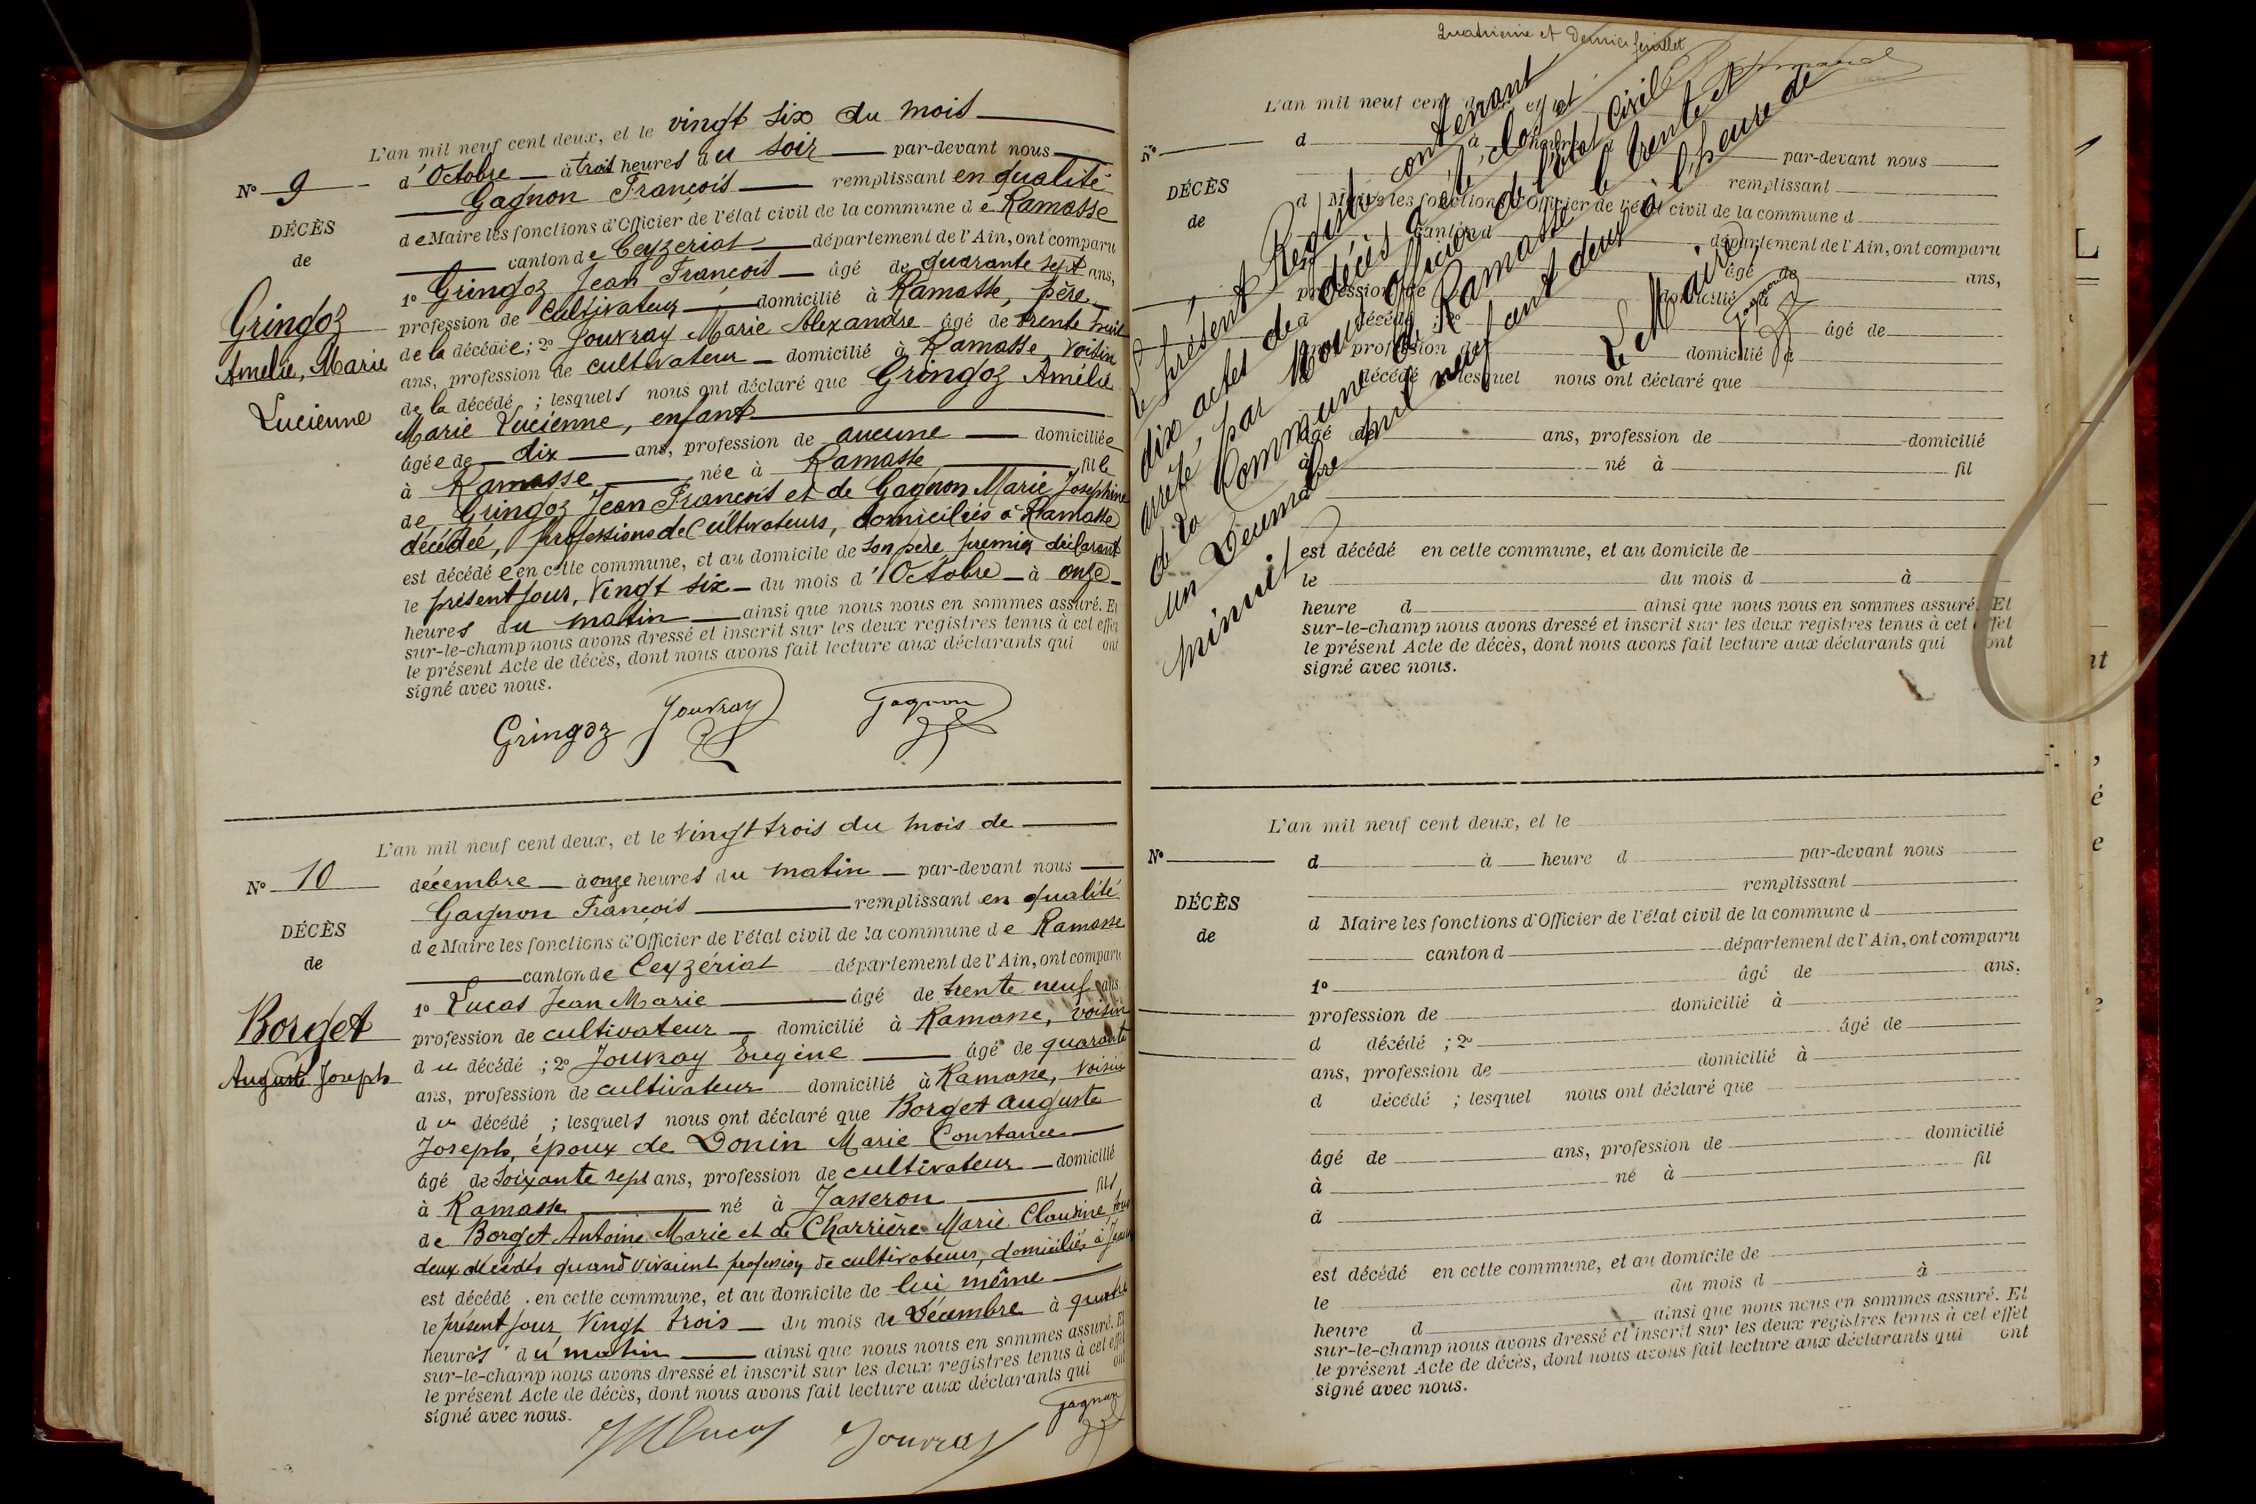 L'an mil neuf cent deux, et le vingt six du mois
N° 9
d'Octobre à trois heures du soir par-devant nous
Gagnon François remplissant en qualité
DÉCÈS
de Maire les fonctions d'Officier de l'état civil de la commune de Ramasse
de
canton de Ceyzeriat département de l'Ain, ont comparu
1° Gringoz Jean François âgé de quarante sept ans,
Gringoz
profession de cultivateur domicilié à Ramasse, père
de la décédée ; 2° Jouvray Marie Alexandre âgé de trente huit
Amélie, Marie
ans, profession de cultivateur domicilié à Ramasse voisin
Lucienne
de la décédé ; lesquels nous ont déclaré que Gringoz Amélie
Marie Lucienne, enfant
âgée de dix ans, profession de aucune domiciliée
à Ramasse née à Ramasse fille
de Gringoz Jean François et de Gagnon Marie Josephine
décédée, professions de Cultivateurs, domiciliés à Ramasse
est décédée en cette commune, et au domicile de son père premier déclarant
le présent jour, Vingt six du mois d'Octobre à onze
heures du matin ainsi que nous nous en sommes assuré. Et
sur-le-champ nous avons dressé et inscrit sur les deux registres tenus à cet effet
le présent Acte de décès, dont nous avons fait lecture aux déclarants qui ont
signé avec nous.
Gringoz Jouvray Gagnon
L'an mil neuf cent deux, et le Vingt trois du mois de
N° 10
décembre à onze heures du matin par-devant nous
Gagnon François remplissant en qualité
DÉCÈS
de Maire les fonctions d'Officier de l'état civil de la commune de Ramasse
de
canton de Ceyzériat département de l'Ain, ont comparu
1° Lucas Jean Marie âgé de trente neuf ans
Borget
profession de cultivateur domicilié à Ramasse, voisin
du décédé ; 2° Jouvray Eugène âgé de quarante
Auguste Joseph
ans, profession de cultivateur domicilié à Ramasse, voisin
du décédé ; lesquels nous ont déclaré que Borget Auguste
Joseph, époux de Donin Marie Constance
âgé de soixante sept ans, profession de cultivateur domicilié
à Ramasse né à Jasseron fils
de Borget Antoine Marie et de Charrière Marie Claudine tous
deux décédés quand vivaient profession de cultivateurs, domiciliés à
est décédé en cette commune, et au domicile de lui même
le présent jour Vingt trois du mois de Décembre à quatre
heures du matin ainsi que nous nous en sommes assuré. Et
sur-le-champ nous avons dressé et inscrit sur les deux registres tenus à cet effet
le présent Acte de décès, dont nous avons fait lecture aux déclarants qui ont
signé avec nous.
Lucas Jouvray Gagnon
Quatrième et dernier feuillet
Le présent Registre contenant
dix actes de décès a été clos et
arrêté, par Nous officier de l'état Civil
de la Commune de Ramasse le trente et
un Décembre mil neuf cent deux à l'heure de
minuit
Le Maire,
Gagnon
L'an mil neuf cent deux, et le
N°
d à heure d par-devant nous
remplissant
DÉCÈS
d Maire les fonctions d'Officier de l'état civil de la commune d
de
canton d département de l'Ain, ont comparu
1° âgé de ans,
profession de domicilié à
d décédé ; 2° âgé de
ans, profession de domicilié à
d décédé ; lesquel nous ont déclaré que
âgé de ans, profession de domicilié
à né à fil
d
est décédé en cette commune, et au domicile de
le du mois d à
heure d ainsi que nous nous en sommes assuré. Et
sur-le-champ nous avons dressé et inscrit sur les deux registres tenus à cet effet
le présent Acte de décès, dont nous avons fait lecture aux déclarants qui ont
signé avec nous.
L'an mil neuf cent deux, et le
N°
d à heure d par-devant nous
remplissant
DÉCÈS
d Maire les fonctions d'Officier de l'état civil de la commune d
de
canton d département de l'Ain, ont comparu
1° âgé de ans.
profession de domicilié à
d décédé ; 2° âgé de
ans, profession de domicilié à
d décédé ; lesquel nous ont déclaré que
âgé de ans, profession de domicilié
à né à fil
d
est décédé en cette commune, et au domicile de
le du mois d à
heure d ainsi que nous nous en sommes assuré. Et
sur-le-champ nous avons dressé et inscrit sur les deux registres tenus à cet effet
le présent Acte de décès, dont nous avons fait lecture aux déclarants qui ont
signé avec nous.